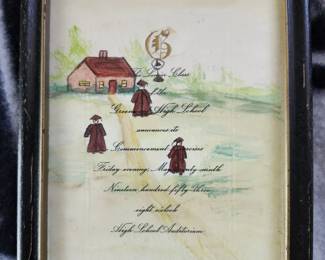 G
The Senior Class
of the
High School
announces its
Commencement
Friday evening, May
Nineteen hundred fifty three
eight o'clock
High School Auditorium